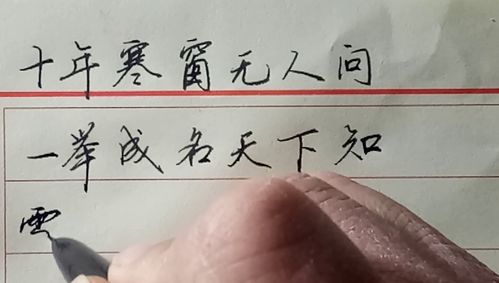 十年寒窗无人问
一举成名天下知
雪